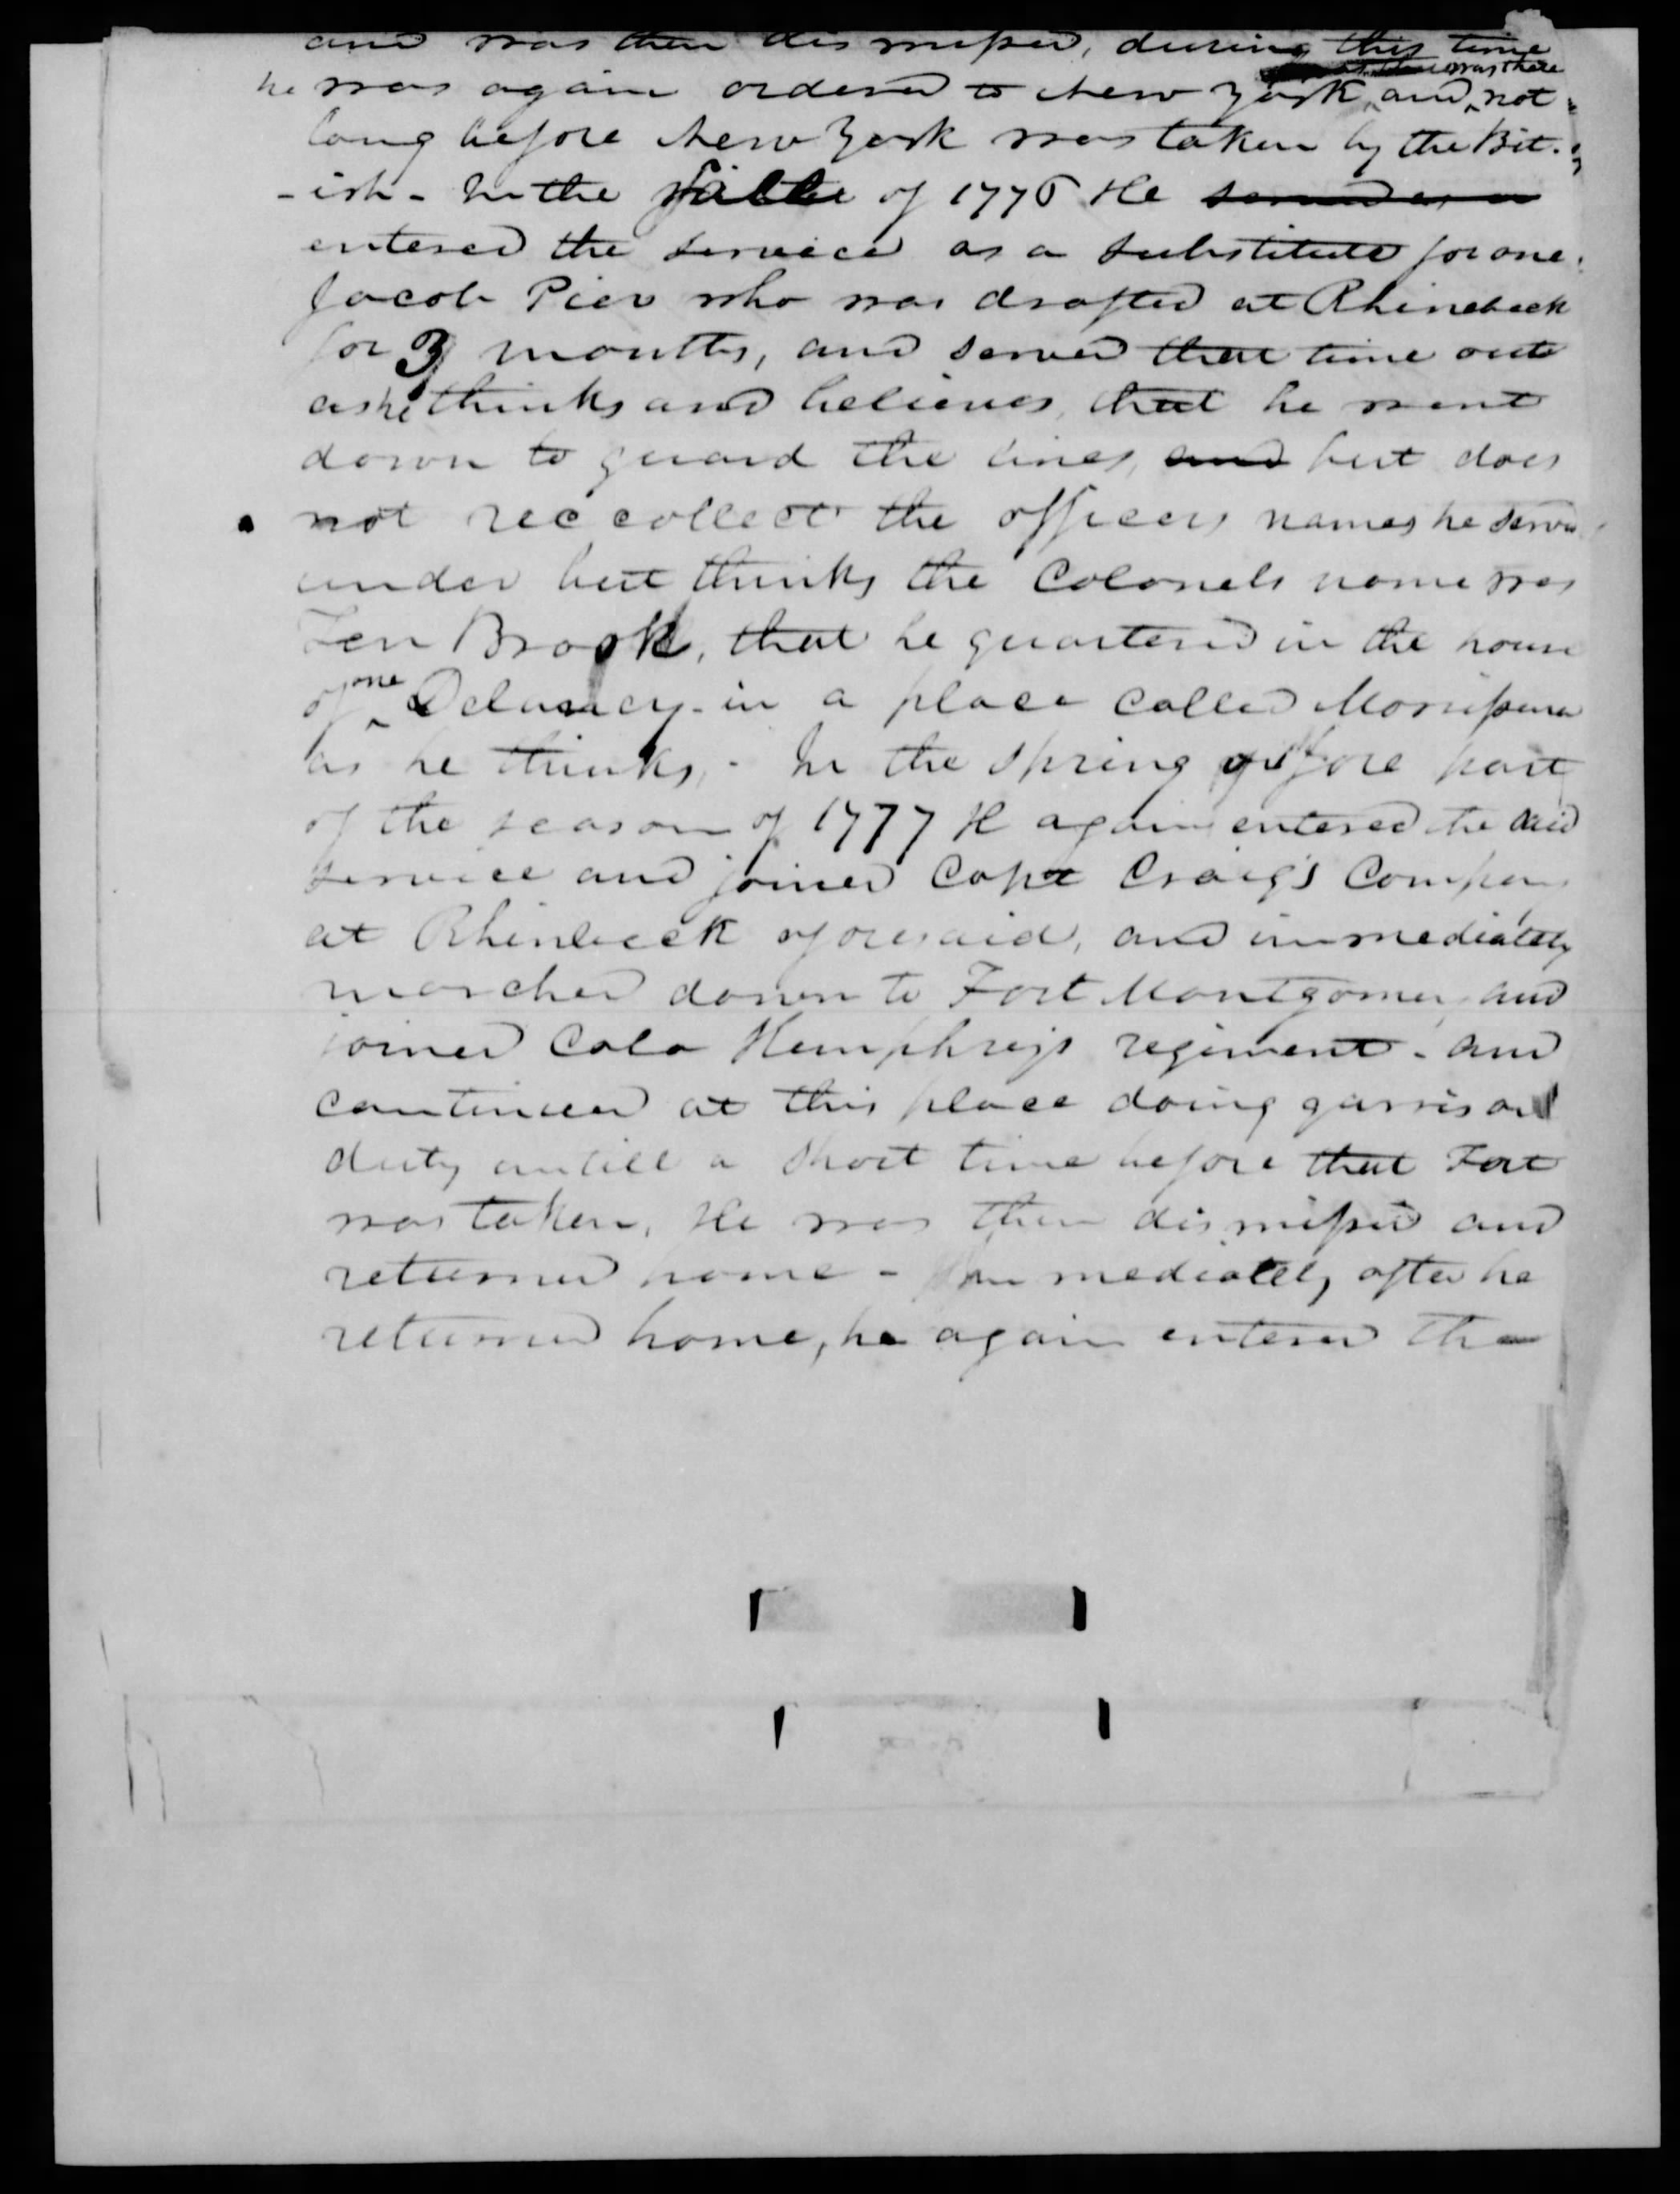 and was then dismissed, during this time
was there
he was again ordered to New York, and not
long before New York was taken by the Brit-
-ish - In the fall of 1776 He served as a
entered the service as a substitute for one
Jacob Pier who was drafted at Rhinebeck
for 3 months, and served that time out
as he thinks and believes, that he went
down to guard the lines, and but does
not reccollect the officers names he served
under but thinks the Colonels name was
Ten Brook, that he quartered in the house
of one Delancey - in a place called Morrissena
as he thinks, - In the Spring or fore part
of the season of 1777 He again entered the said
service and joined Capt Craig's Company
at Rhinbeck aforesaid, and immediately
marched down to Fort Montgomery and
joined Colo Hemphreys regiment - and
continued at this place doing garrison
duty untill a short time before that Fort
was taken, He was then dismissed and
returned home - Immediately after he
returned home, he again entered the